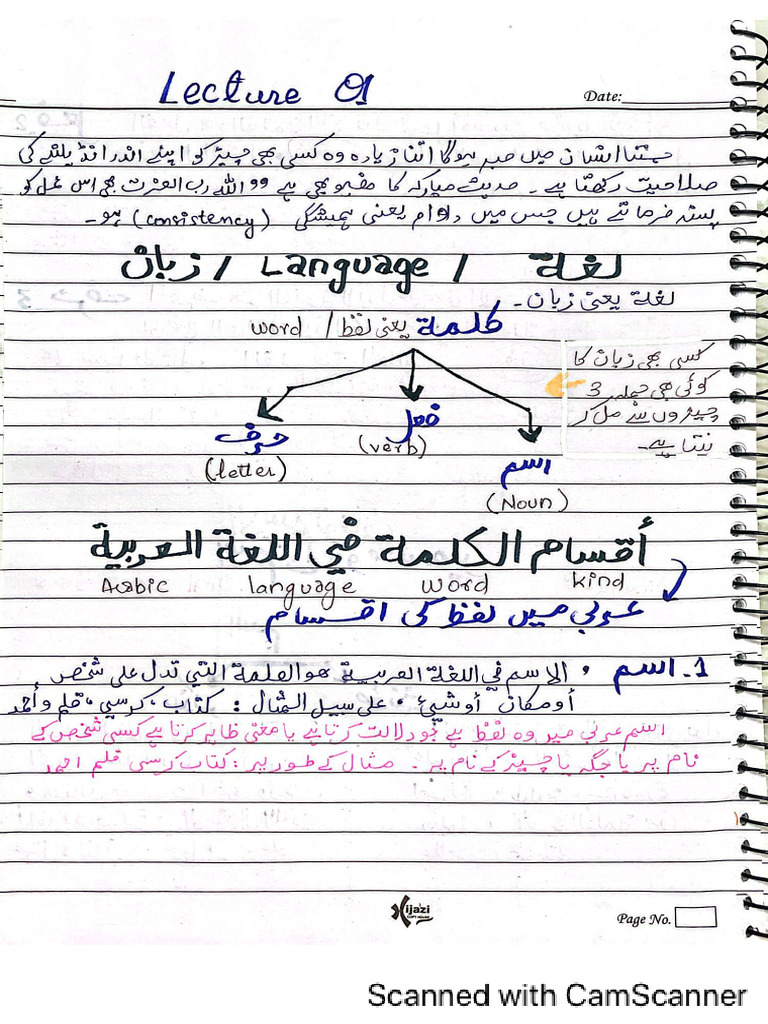 Lecture 01
Date:
جتنا انسان میں صبر ہوگا اتنا زیادہ وہ کسی بھی چیز کو اپنے اندر انڈیلنے کی
صلاحیت رکھتا ہے۔ حدیث مبارکہ کا مفہوم بھی ہے "اللہ رب العزت بھی اس عمل کو
پسند فرماتے ہیں جس میں دوام یعنی ہمیشگی (consistency) ہو۔
لغة / Language / زبان
لغة یعنی زبان۔
كلمة یعنی لفظ / word
کسی بھی زبان کا
کوئی بھی جملہ 3
چیزوں سے مل کر
بنتا ہے۔
اسم
(Noun)
فعل
(verb)
حرف
(letter)
أقسام الكلمة في اللغة العربية
kind word language Arabic
عربی میں لفظ کی اقسام
1۔ اسم ، الاسم في اللغة العربية هو الكلمة التي تدل على شخص
أو مكان أو شيئ، على سبيل المثال : كتاب، كرسي، قلم و أحمد
اسم عربی میں وہ لفظ ہے جو دلالت کرتا ہے یا معنی ظاہر کرتا ہے کسی شخص کے
نام پر یا جگہ یا چیز کے نام پر۔ مثال کے طور پر : کتاب کرسی قلم احمد
Hijazi
Page No.
Scanned with CamScanner